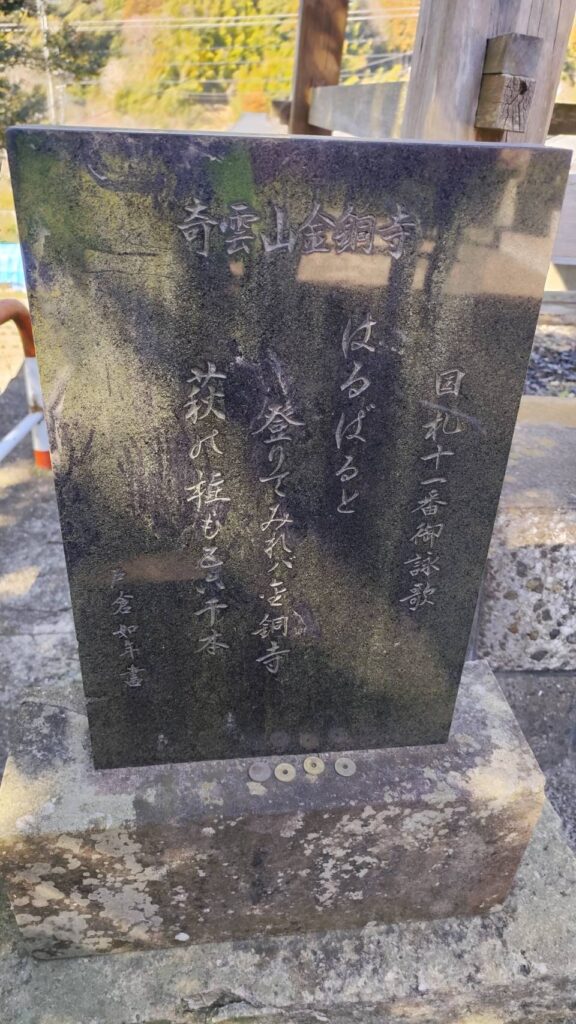 奇雲山金銅寺
国札十一番御詠歌
はるばると
登りてみれバ金銅寺
萩の柱も千本
戸倉如年書